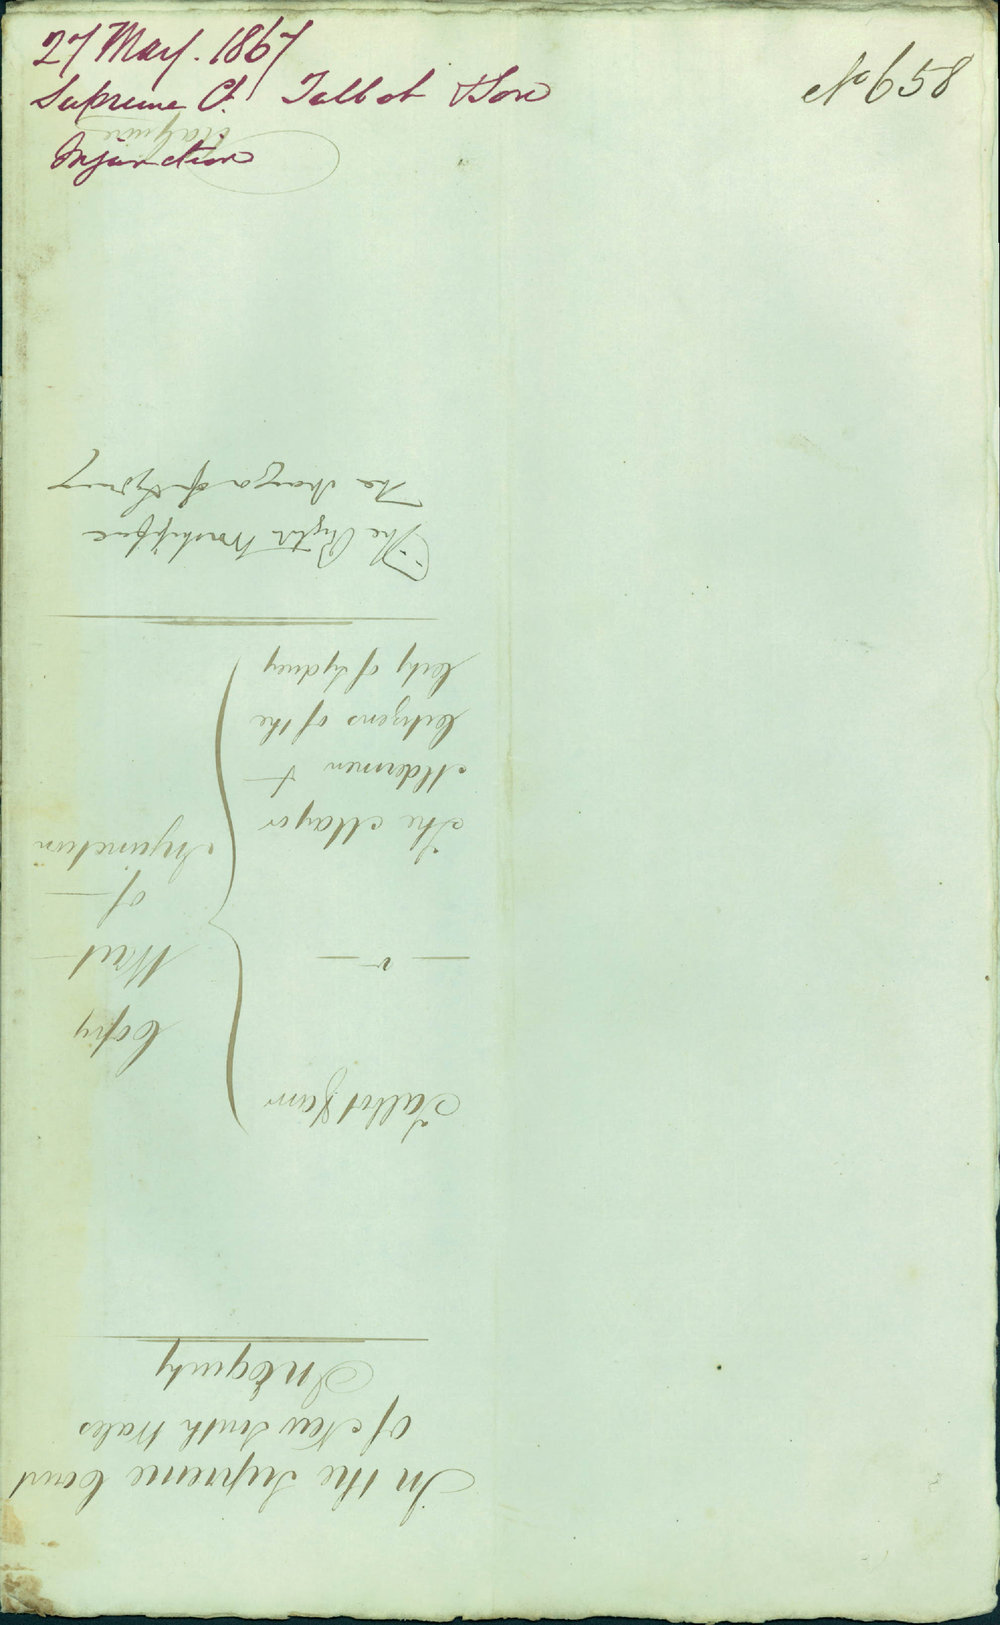 27 May. 1867
Supreme Ct. Talbot & Son
Injunction
No 658
In the Supreme Court
of New South Wales
In Equity
Talbot & anr
— v —
The Mayor
Aldermen &
Citizens of the
City of Sydney
Copy
Writ
of
Injunction
The Right Worshipful
The Mayor of Sydney